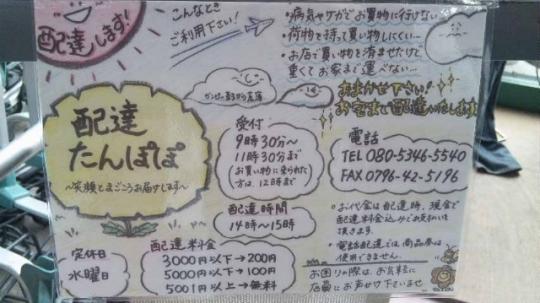 配達します!
こんなとき
ご利用下さい!
・病気やケガでお買物に行けない
・荷物を持って買い物しにくい…
・お店で買い物を済ませたけど
重くてお家まで運べない…
おまかせ下さい!
お宅まで配達いたします
配達
たんぽぽ
～笑顔とまごころお届けします～
受付
9時30分～
11時30分まで
お買い物に来られた
方は、12時まで
配達時間
14時～15時
電話
TEL 080-5346-5540
FAX 0796-42-5196
・お代金は配達時、現金で
配達料金込みでお支払いを
頂きます。
・電話配達では、商品券は
使用できません。
お困りの際は、お気軽に
店員にお声せ下さいませ
定休日
水曜日
配達料金
3000円以下→200円
5000円以下→100円
5001円以上→無料